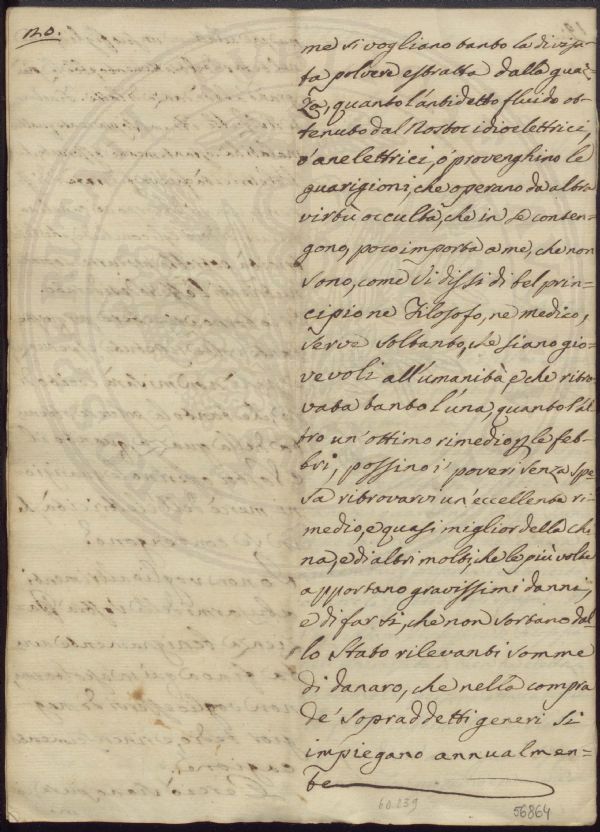 120.
me si vogliano tanto la divisa-
ta polvere estratta dalla quaz-
za, quanto l'antidetto fluido ot-
tenuto dal Nostoc idioelettrici,
ó anelettrici, ó provenghino le
guarigioni, che operano da altra
virtù occulta, che in se conten-
gono, poco importa a me, che non
sono, come vi dissi di bel prin-
cipio ne Filosofo, ne medico,
serve soltanto, che siano gio-
vevoli all'umanità, e che ritro-
vata tanto l'una, quanto l'al
tro un'ottimo rimedio p le feb-
bri, possino i poveri senza spe-
sa ritrovarvi un'eccellente ri-
medio, e quasi miglior della chi
na, e di altri molti, che le più volte
apportano gravissimi danni,
e di far sì, che non sortano dal-
lo Stato rilevanti somme
di danaro, che nella compra
de' sopraddetti generi si
impiegano annualmen-
te
60.239
56864